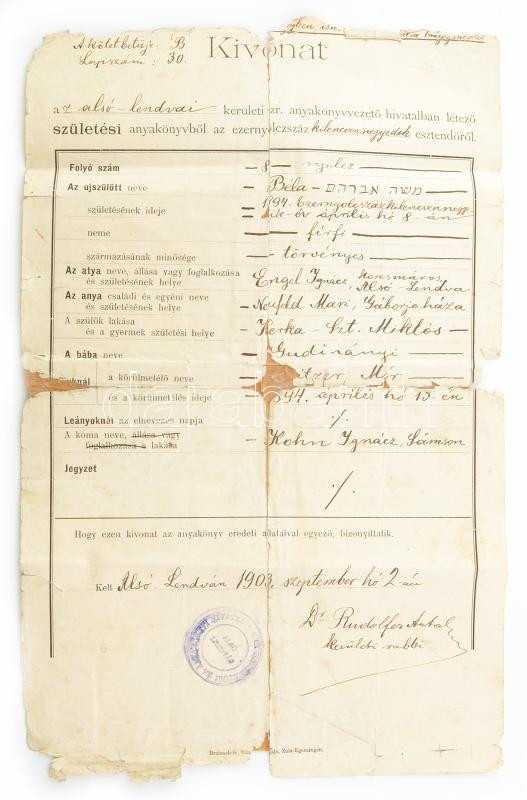 A kötet betűje: B
Lapszám: 30.
Kivonat
a z alsó-lendvai kerületi izr. anyakönyvvezető-hivatalban létező
születési anyakönyvből az ezernyolczszáz kilencvennegyedik esztendőről.
Folyó szám — 8 — nyolcz
Az ujszülött neve — Béla – משה אברהם —
születésének ideje 1894. Ezernyolczszázkilencvennegy-
dik év április hó 8-án
neme — férfi —
származásának minősége — törvényes —
Az atya neve, állása vagy foglalkozása Engel Ignácz, korcsmáros,
és születésének helye Alsó-Lendva
Az anya családi és egyéni neve
és születésének helye — Neufeld Mari, Gáborjaháza
A szülők lakása
és a gyermek születési helye — Kerka-Szt. Miklós —
A bába neve — Gudirányi —
a körülmetélő neve Mór
és a körülmetélés ideje 894. április hó 15-én
Leányoknál az elnevezés napja ./.
A koma neve, állása vagy
foglalkozása a lakása — Kohn Ignácz, Sámson
Jegyzet ./.
Hogy ezen kivonat az anyakönyv eredeti adataival egyező, bizonyíttatik.
Kelt Alsó-Lendván 1903. szeptember hó 2-án
Dr Rudolfer Antal
kerületi rabbi
Zala-Egerszegen.
databank